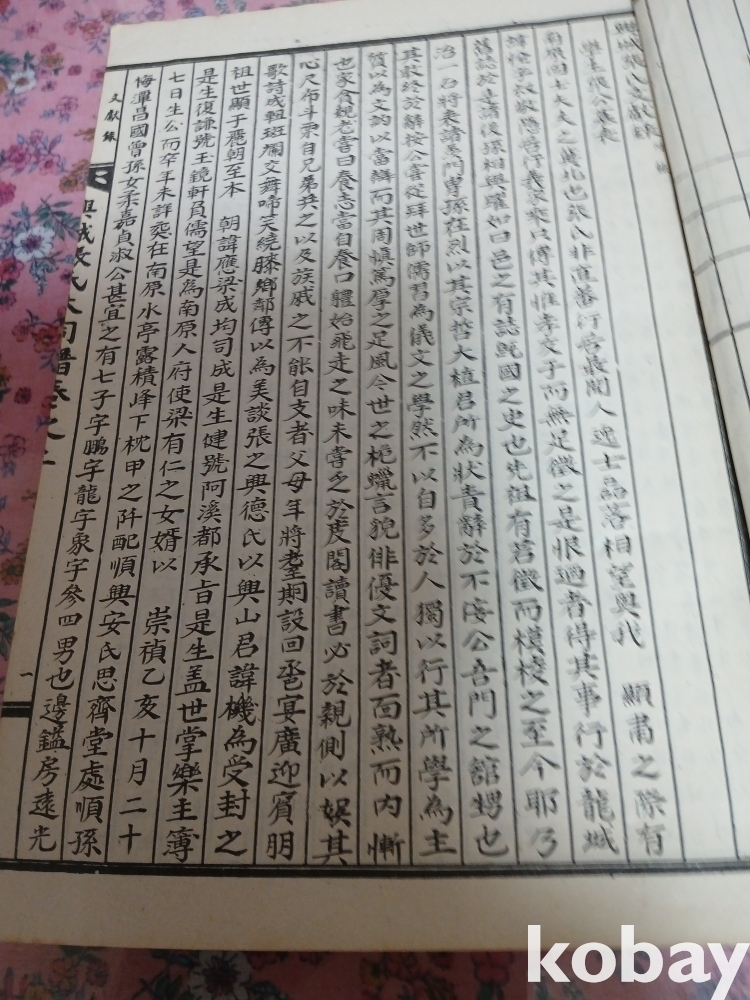 興城張氏文獻錄
張公墓表
國士大夫之冀北也張氏非直蕃衍爲最聞人逸士磊落相望與我 顯肅之際有
隱居行義家乘以傳其惟孝文子而無足徵之是恨廼者得其事行於龍城
舊誌於是諸後孫相與躍如曰邑之有誌國之史也先祖有徵而模稜之至今耶乃
治一石將表諸墓門曹孫在烈以其宗哲大植君所為狀責辭於不佞公吾門之館甥也
其敢終於辭按公嘗從拜世師儒習為儀文之學然不以自多於人獨以行其所學為主
質以為文訥以當辯而其周愼篤厚之足風今世之梔蠟言貌俳優文詞者面熟而內慚
也家貧親老嘗曰養志當自養口體始飛走之味未嘗乏於庋閣讀書必於親側以娛其
心尺布斗粟自兄弟共之以及族戚之不能自支者父母年將耋期設回巹宴廣迎賓朋
歌詩成輯斑斕交舞啼笑繞膝鄉鄰傳以為美談張之興德氏以興山君諱機為受封之
祖世顯于麗朝至本 朝諱應梁成均司成是生健號阿溪都承旨是生蓋世掌樂主簿
是生復謙號玉鏡軒負儒望是為南原人府使梁有仁之女婿以 崇禎乙亥十月二十
七日生公而卒年未詳葬在南原水亭露積峰下枕甲之阡配順興安氏思齊堂處順孫
悔潭昌國曾孫女柔嘉貞淑公甚宜之有七子字鵬字龍字象字參四男也邊鎰房遠光
文獻錄
興城張氏大同譜卷之二
一
kobay